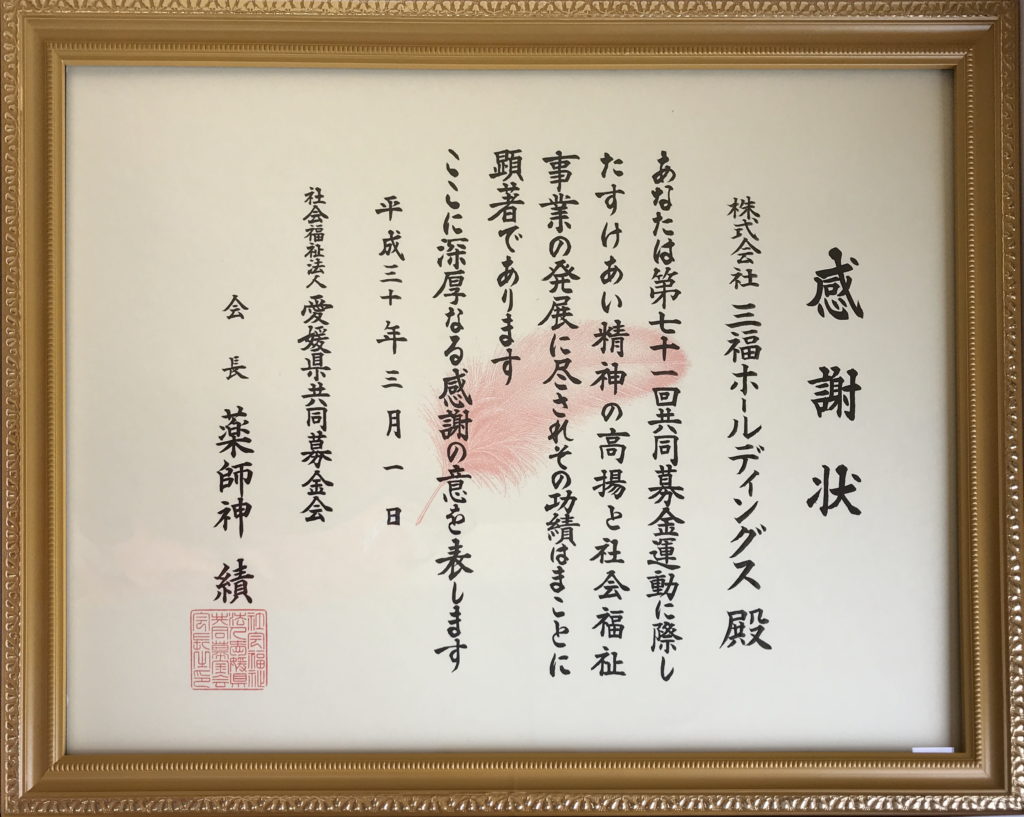 感謝状
株式会社 三福ホールディングス 殿
あなたは第七十一回共同募金運動に際し
たすけあい精神の高揚と社会福祉
事業の発展に尽されその功績はまことに
顕著であります
ここに深厚なる感謝の意を表します
平成三十年三月一日
社会福祉法人 愛媛県共同募金会
会長 薬師神 績
社会福祉
法人愛媛県
共同募金会
会長之印